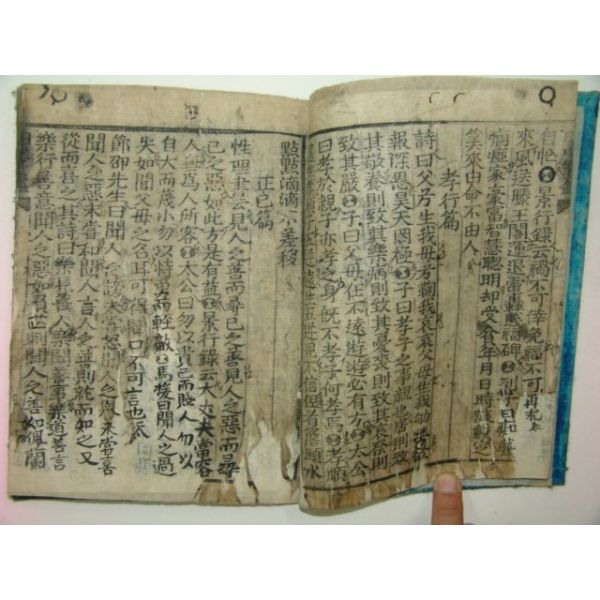 自忙景行錄云禍不可倖免福不可再求
來風送滕王閣運退雷轟薦福碑列子曰痴聾
痼瘂家豪富智慧聰明却受貧年月日時該載定
筭來由命不由人
孝行篇
詩曰父兮生我母兮鞠我哀哀父母生我劬勞欲
報深恩昊天罔極子曰孝子之事親也居則致
其敬養則致其樂病則致其憂喪則致其哀祭則
致其嚴子曰父母在不遠遊遊必有方太公
曰孝於親子亦孝之身旣不孝子何孝焉孝順
還生孝順子五逆還生五逆兒不信但看簷頭水
點點滴滴不差移
正己篇
性理書云見人之善而尋己之善見人之惡而尋
己之惡如此方是有益景行錄云大丈夫當容
人無爲人所容太公曰勿以貴己而賤人勿以
自大而蔑小勿以恃勇而輕敵馬援曰聞人之過
失如聞父母之名耳可得聞口不可言也康
節邵先生曰聞人之謗未嘗怒聞人之譽未嘗喜
聞人之惡未嘗和聞人言人之善則就而和之又
從而喜之其詩曰樂見善人樂聞善事樂道善言
樂行善意聞人之惡如負芒刺聞人之善如佩蘭